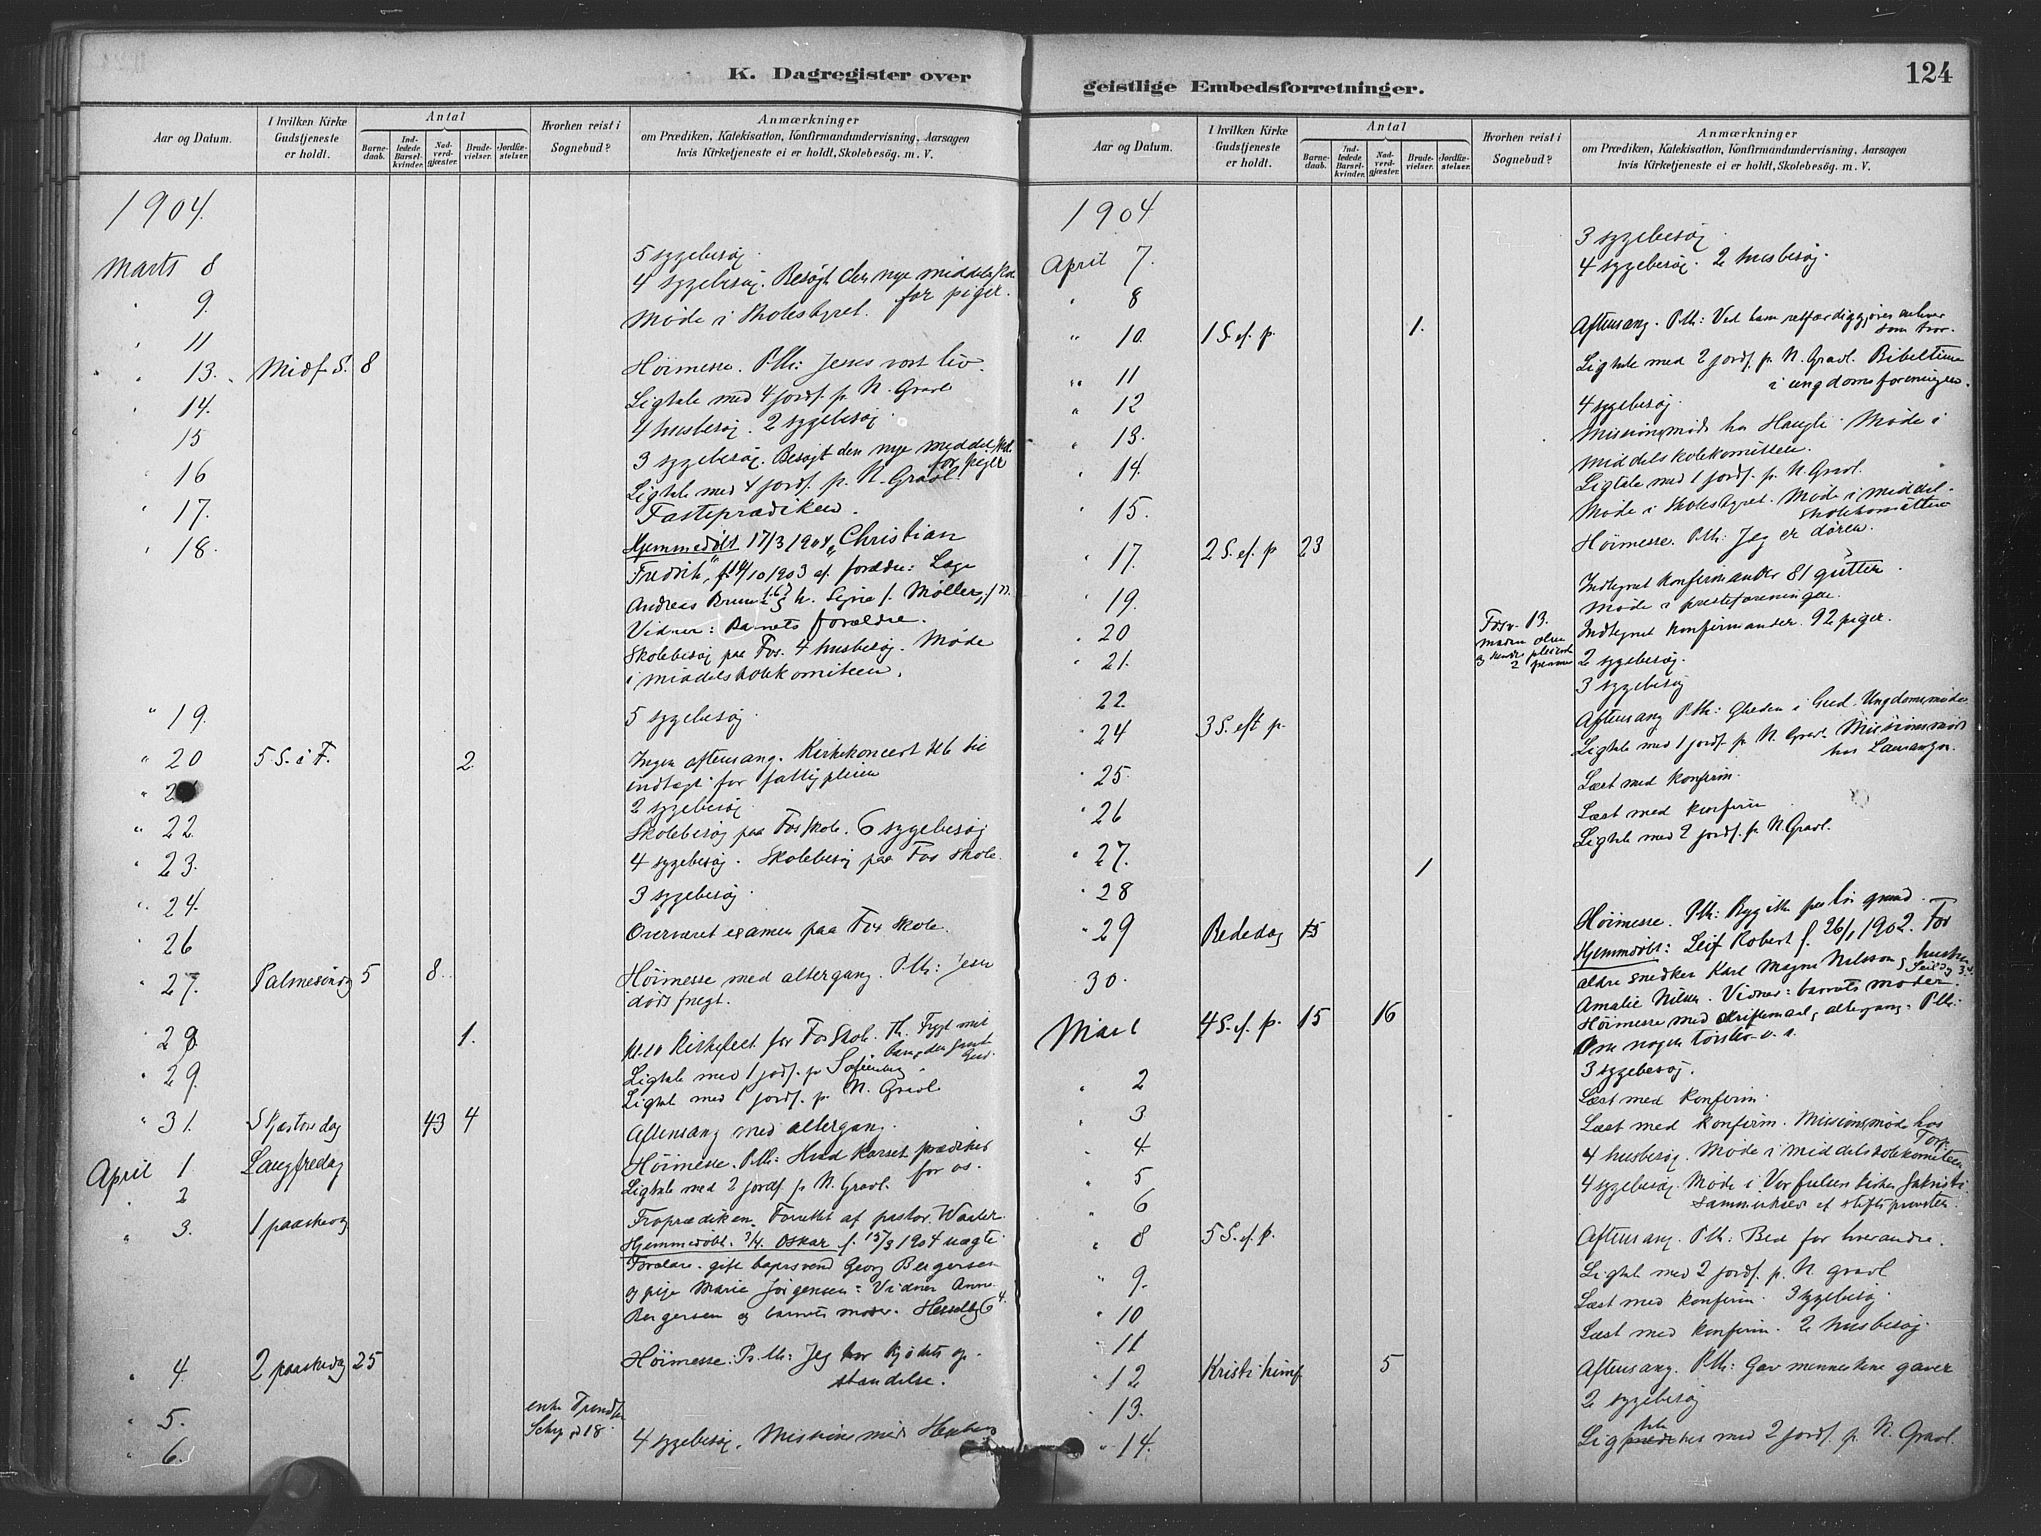 K. Dagregister over
Aar og Datum.
I hvilken Kirke Gudstjeneste er holdt.
Antal
Barnedaab.
Indledede Barselkvinder.
Nadverdgjæster.
Brudevielser.
Jordfæstelser.
Hvorhen reist i Sognebud?
Anmærkninger
om Prædiken, Katekisation, Konfirmandundervisning, Aarsagen
hvis Kirketjeneste ei er holdt, Skolebesög. m. V.
1904.
Marts 8
5 sygebesøg.
9. 4 sygebesøg. Besøgt den nye middelskole
for piger.
11 Møde i Skolestyret.
13. Midf. S. 8 Høimesse. P.th: Jesus vort liv.
14. Ligtale med 4 jordf. p. N. Gravl
15 4 husbesøg. 2 sygebesøg
16 3 sygebesøg. Besøgt den nye middelskole
for piger
17. Ligtale med 4 jordf. p. N. Gravl.
Fasteprædiken.
18. Hjemmedøbt 17/3 1904 "Christian
Fredrik", f. 10/10 1903 af forældre: Lage
Andreas h. Signe f. Møller
Vidner: Barnets forældre.
Skolebesøg paa Fos. 4 husbesøg. Møde
i middelskolekomiteen.
19. 5 sygebesøg.
20 5 S. i F. 2. Ingen aftensang. Kirkekoncert kl 6 til
indtægt for fattigpleien
2 sygebesøg
22 Skolebesøg paa Fos Skole. 6 sygebesøg
23. 4 sygebesøg. Skolebesøg paa Fos Skole.
24. 3 sygebesøg.
26 Overværet examen paa Fos Skole.
27. Palmesøndag 5 8. Høimesse med altergang. P.th: Jesu
døds frugt.
28. 1. Kl. 10 Kirkefest for Fos Skole. Th. Frygt mit
barn, den sande Gud
29. Ligtale med 1 jordf. p. Sofienberg.
Ligtale med 1 jordf. p. N. Gravl
31. Skjærtorsdag 43 4 Aftensang med altergang.
April 1 Langfredag Høimesse. P.th: Hvad korset prædiker
for os.
2 Ligtale med 2 jordf. p. N. Gravl.
3. 1 paaskedag Froprædiken. Forrettet af pastor Waaler.
Hjemmedøbt. 3/4. Oskar f. 15/3 1904 uægte.
Forældre. gift Georg Bergersen
og pige Marie Jørgensen: Vidner Anne
Bergersen og barnets moder. Hesselbg 6
4. 2 paaskedag 25 Høimesse. P.th: Jeg tror kjødets op-
standelse.
5. enke
18.
6. 4 sygebesøg. Missionsmøde

geistlige Embedsforretninger.
124
Aar og Datum.
I hvilken Kirke Gudstjeneste er holdt.
Antal
Barnedaab.
Indledede Barselkvinder.
Nadverdgjæster.
Brudevielser.
Jordfæstelser.
Hvorhen reist i Sognebud?
Anmærkninger
om Prædiken, Katekisation, Konfirmandundervisning, Aarsagen
hvis Kirketjeneste ei er holdt, Skolebesög. m. V.
1904
April 7. 3 sygebesøg.
8 4 sygebesøg. 2 husbesøg.
10. 1 S. ef. p. 1. Aftensang. P.th: Ved ham retfærdiggjøres enhver
som tror.
11 Ligtale med 2 jordf. p. N. Gravl. Bibeltime
i ungdomsforeningen.
12 4 sygebesøg.
13. Missionsmøde hos Haugli. Møde i
middelskolekomiteen.
14. Ligtale med 1 jordf. p. N. Gravl.
15. Møde i Skolestyret. Møde i middel-
skolekomiteen
17. 2 S. ef. p 23 Høimesse. P.th: Jeg er døren.
19. Indtegnet konfirmander 81 gutter.
Møde i presteforeningen.
20 Indtegnet konfirmander. 92 piger.
Fosv. 13.
2 personer
21. 2 sygebesøg.
22. 3 sygebesøg
24 3 S. eft p. Aftensang P.th: Glæden i Gud. Ungdomsmøde.
25. Ligtale med 1 jordf. p. N. Gravl. Missionsmøde
hos
26 Læst med konfirm.
27. Læst med konfirm
28 1 Ligtale med 2 jordf. p. N. Gravl.
29 Bededag 15 Høimesse. P.th: Byg ikke paa løs grund.
30. Hjemmedøbt: Leif Robert f. 26/1 1902. For-
ældre snedker Karl Magnus Nilsson og hustru
Amalie Nilsen. Vidner: barnets moder.
Mai 1 4 S. ef. p. 15 16 Høimesse med skriftemaal, altergang. P.th:
Om nogen tørster o.s.
2 3 sygebesøg.
3 Læst med konfirm.
4. Læst med konfirm. Missionsmøde hos
5 4 husbesøg. Møde i middelskolekomiteen
6 4 sygebesøg. Møde i Vor frelsers kirkes sakristi
sammenkaldt af stiftsprovsten.
8 5 S. ef. p. Aftensang. P.th: Bed for hverandre.
9. Ligtale med 2 jordf. p. N. gravl
10 Læst med konfirm. 3 sygebesøg.
11 Læst med konfirm. 2 husbesøg.
12 Kristi himf. 5 Aftensang. P.th: Gav menneskene gaver
13. 2 sygebesøg
14. Ligtale med 2 jordf. p. N. Gravl.